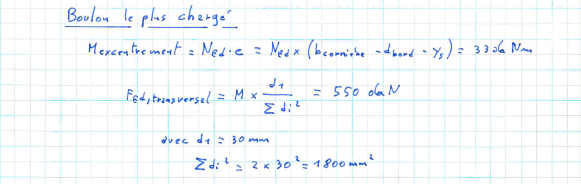 Boulon le plus chargé
Mexcentrement = NEd · e = NEd × (bcornière - dbord - ys) = 33 daNm
FEd,transversal = M × d1 / Σ di² = 550 daN
avec d1 = 30 mm
Σ di² = 2 × 30² = 1800 mm²